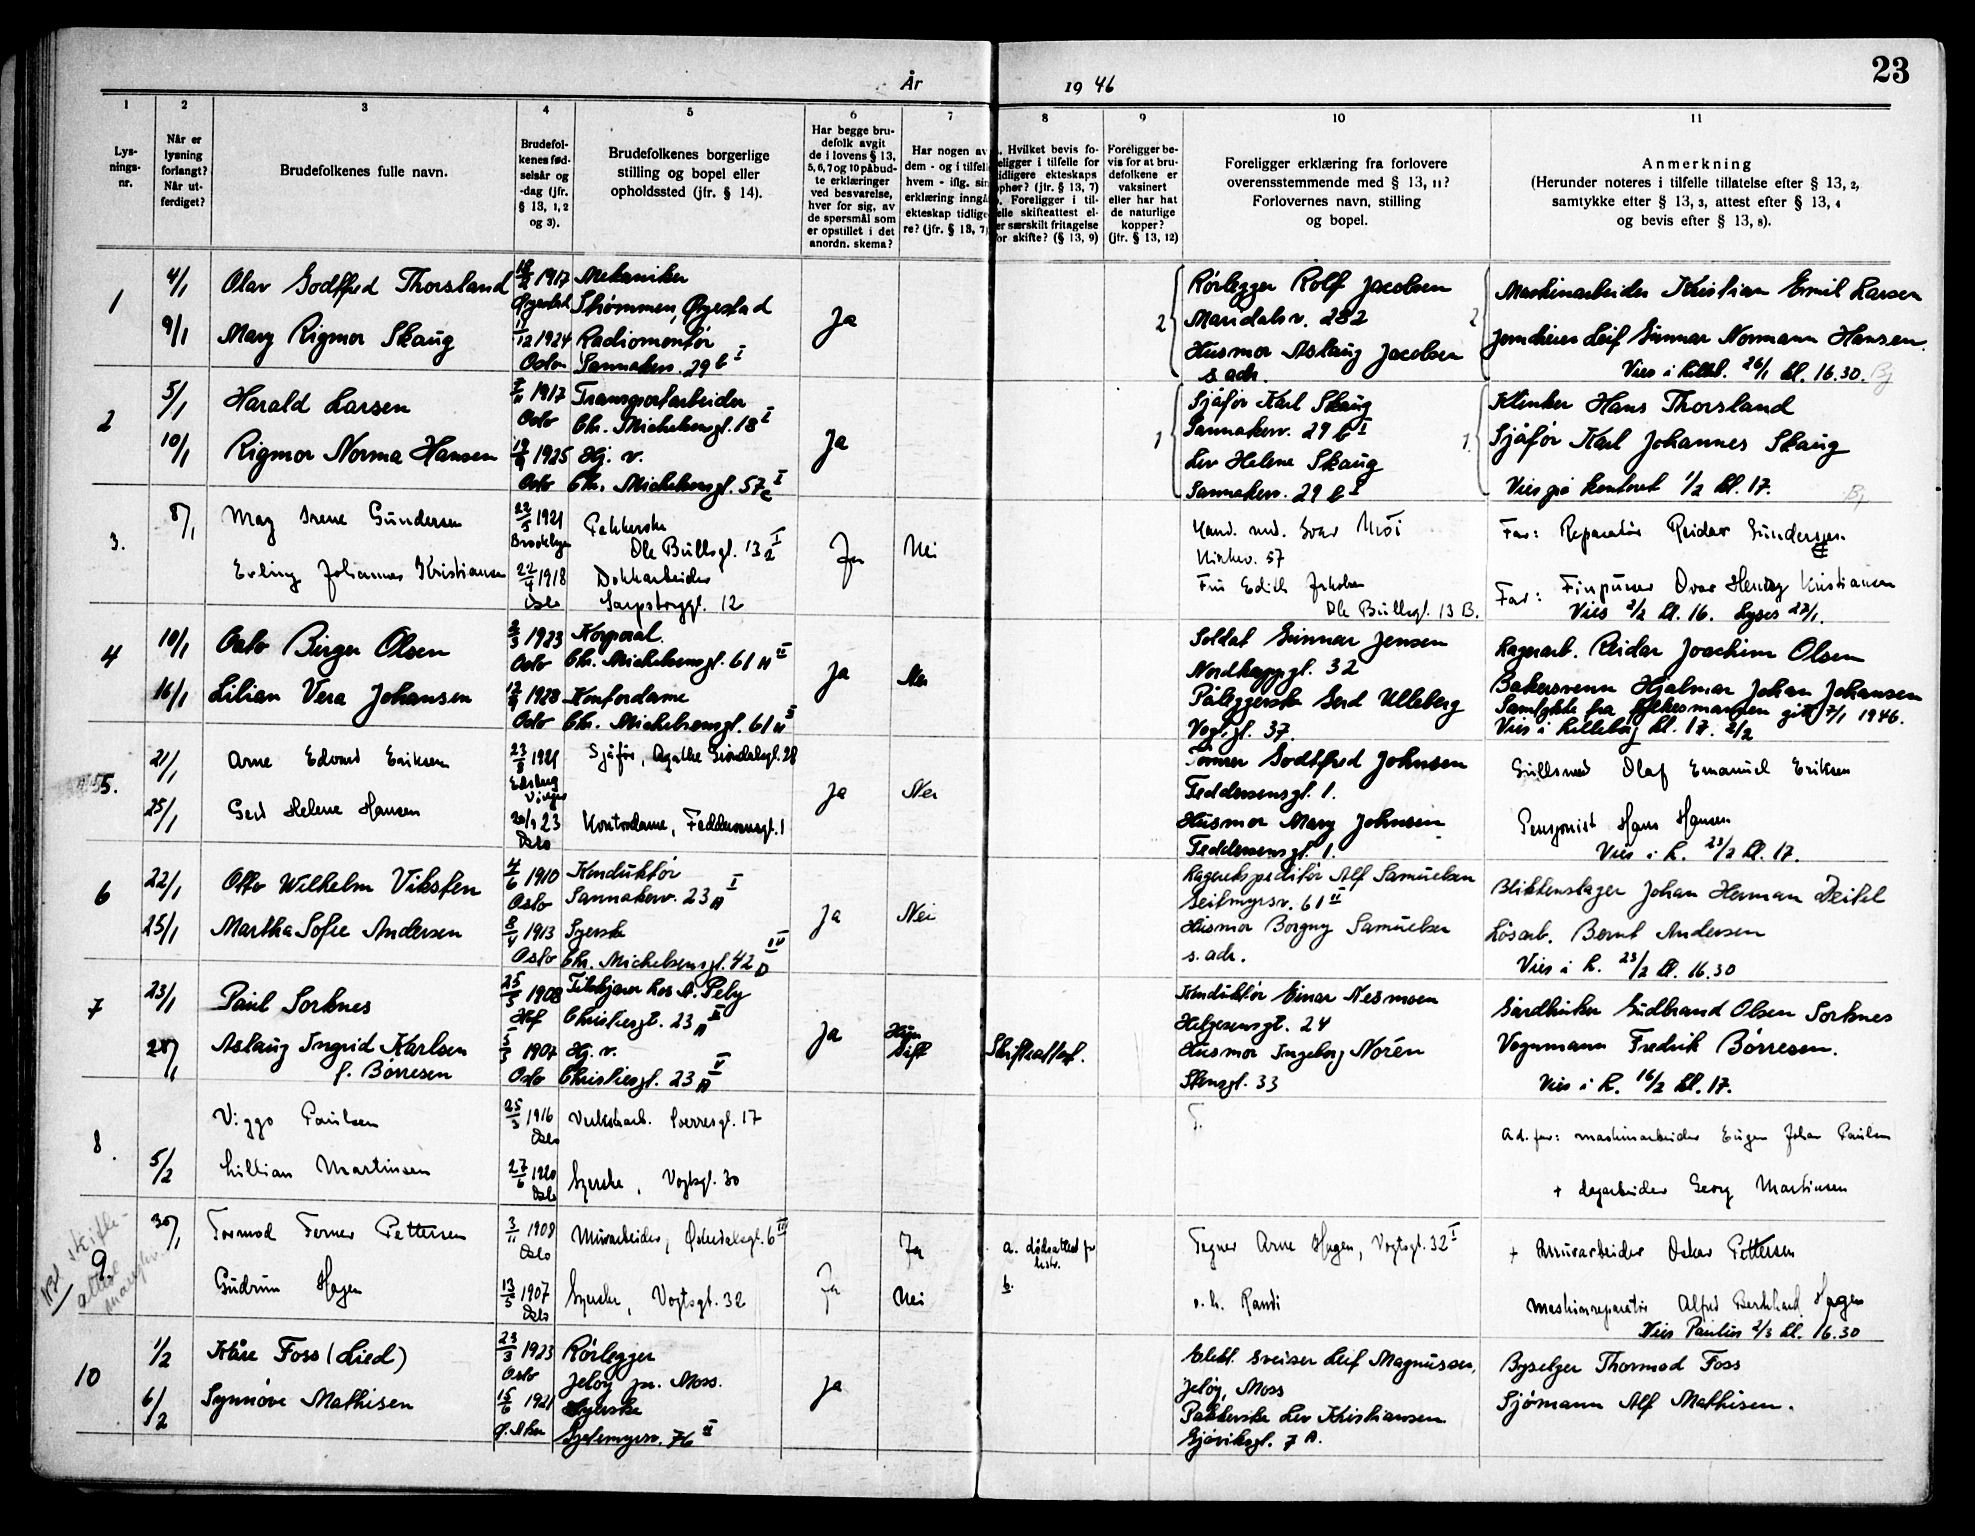 23
År 1946
1 2 3 4 5 6 7 8 9 10 11
Lys-
nings-
nr.
Når er
lysning
forlangt?
Når ut-
ferdiget?
Brudefolkenes fulle navn.
Brudefol-
kenes fød-
selsår og
-dag (jfr.
§ 13, 1, 2
og 3).
Brudefolkenes borgerlige
stilling og bopel eller
opholdssted (jfr. § 14).
Har begge bru-
defolk avgit
de i lovens § 13,
5, 6, 7 og 10 påbud-
te erklæringer
ved besvarelse,
hver for sig, av
de spørsmål som
er opstillet i det
anordn. skema?
Har nogen av
dem - og i tilfelle
hvem - iflg. sin
erklæring inngå
ekteskap tidlige-
re? (jfr. § 13, 7)
Hvilket bevis fo-
religger i tilfelle for
tidligere ekteskaps
ophør? (jfr. § 13, 7)
Foreligger i til-
felle skifteattest el-
er særskilt fritagelse
for skifte? (§ 13, 9)
Foreligger be-
vis for at bru-
defolkene er
vaksinert
eller har hat
de naturlige
kopper?
(jfr. § 13, 12)
Foreligger erklæring fra forlovere
overensstemmende med § 13, 11?
Forlovernes navn, stilling
og bopel.
Anmerkning
(Herunder noteres i tilfelle tillatelse efter § 13, 2,
samtykke efter § 13, 3, attest efter § 13, 4
og bevis efter § 13, 8).
1
4/1 Olav Godtfred Thorsland 1917 Mekaniker
Øyestad Strømmen, Øyestad
9/1 Mary Rigmor Skaug 1924 Radiomontør
Oslo Sannakerv. 29 b I
Ja
2 Rørlegger Rolf Jacobsen
Maridalsv. 282
Husmor Aslaug Jacobsen
s. adr.
2 Maskinarbeider Kristian Emil Larsen
Jerndreier Leif Gunnar Normann Hansen.
Vies i Lilleb. 26/1 kl. 16.30.
2
5/1 Harald Larsen 1917 Transportarbeider
Oslo Chr. Michelsensgt. 18 I
10/1 Rigmor Norma Hansen 1925 Hj. v.
Oslo Chr. Michelsensgt. 57c I
Ja
1 Sjåfør Karl Skaug
Sannakerv. 29 b I
Liv Helene Skaug
Sannakerv. 29 b I
1. Klinker Hans Thorsland
Sjåfør Karl Johannes Skaug
Vies på kontoret 1/2 kl. 17.
3.
8/1 May Irene Gundersen 22/5 1921 Pakkerske
Brooklyn Ole Bullsgt. 13 I
Erling Johannes Kristiansen 1918 Dokkarbeider
Oslo Sarpsborggt. 12
Ja Nei
Kirkev. 57
Fru Edith Jakobsen
Ole Bullsgt. 13 B.
Far: Reparatør Reidar Gundersen
Far: Finpusser Ovar Henry Kristiansen
Vies 2/2 kl. 16. Lyses 27/1.
4
10/1 Oslo Birger Olsen 1923 Korporal.
Oslo Chr. Michelsensgt. 61 H II
16/1 Lilian Vera Johansen 1928 Kontordame
Oslo Chr. Michelsensgt. 61 H
Ja Nei
Soldat Gunnar Jensen
Nordkappgt. 32
Påleggerske Gerd Ulleberg
Vogtsgt. 37.
Lagerarb. Reidar Joachim Olsen
Bakersvenn Hjalmar Johan Johansen
Samtykke fra fylkesmannen gitt 7/1 1946.
Vies i Lilleborg kl. 17. 2/2
5.
21/1 Arne Edvard Eriksen 23/8 1921 Sjåfør, Agathe Grøndahlsgt. 28
25/1 Gerd Helene Hansen 23 Kontordame, Feddersensgt. 1
Oslo
Ja Nei
Former Godtfred Johnsen
Feddersensgt. 1.
Husmor Mary Johnsen
Feddersensgt. 1.
Gullsmed Olaf Emanuel Eriksen
Pensjonist Hans Hansen
Vies i L. 23/2 kl. 17.
6
22/1 Otto Wilhelm Viksten 4/6 1910 Konduktør
Oslo Sannakerv. 23 A I
25/1 Martha Sofie Andersen 8/4 1913 Syerske
Oslo Chr. Michelsensgt. 42 D IV
Ja Nei
Lagerekspeditør Alf Samuelsen
Geitmyrsv. 61 II
Husmor Borgny Samuelsen
s. adr.
Blikkenslager Johan Herman Deitel
Løsarb. Bernt Andersen
Vies i L. 23/2 kl. 16.30
7
23/1 Paul Sorknes 25/5 1908 Tilskjærer hos A. Peby
Hof Christiesgt. 23 A II
28/1 Aslaug Ingrid Karlsen 5/3 1907 Hj. v.
f. Børresen Oslo Christiesgt. 23 A V
Ja Hun
gift
Skifteattest.
Konduktør Einar Nesmoen
Helgesensgt. 24
Husmor Ingeborg Norén
Stensgt. 33
Gårdbruker Gudbrand Olsen Sorknes
Vognmann Fredrik Børresen.
Vies i L. 16/2 kl. 17.
8.
Viggo Paulsen 25/3 1916 Verkstarb. Sverresgt. 17
Oslo
5/2 Lillian Martinsen 27/6 1920 Syerske, Vogtsgt. 30
Oslo
Ad. far: maskinarbeider Eugen Johan Paulsen
+ dagarbeider Georg Martinsen
9
NB! skifte-
attest
mangler.
30/1 Tormod Ferner Pettersen 3/11 1908 Murarbeider, Østerdalsgt. 6 III
Oslo
Gudrun Hagen 13/5 1907 Syerske, Vogtsgt. 32
Oslo
Ja
Ja
Nei
a. dødsattest fr
b.
Tegner Arne Hagen, Vogtsgt. 32 I
v. h. Randi
+ Murarbeider Oskar Pettersen
Maskinreparatør Alfred Bernhard Hagen
Vies Paulus 2/3 kl. 16.30
10
1/2 Kåre Foss (Lied) 23/3 1923 Rørlegger
Oslo Jeløy pr. Moss.
6/2 Synnøve Mathisen 15/6 1921 Syerske
Ø. Aker Gjetemyrsv. 76 II
Ja
Elekt. sveiser Leif Magnussen,
Jeløy, Moss
Pakkerske Liv Kristiansen
Gjøviksgt. 7 A.
Byselger Thormod Foss
Sjømann Alf Mathisen.